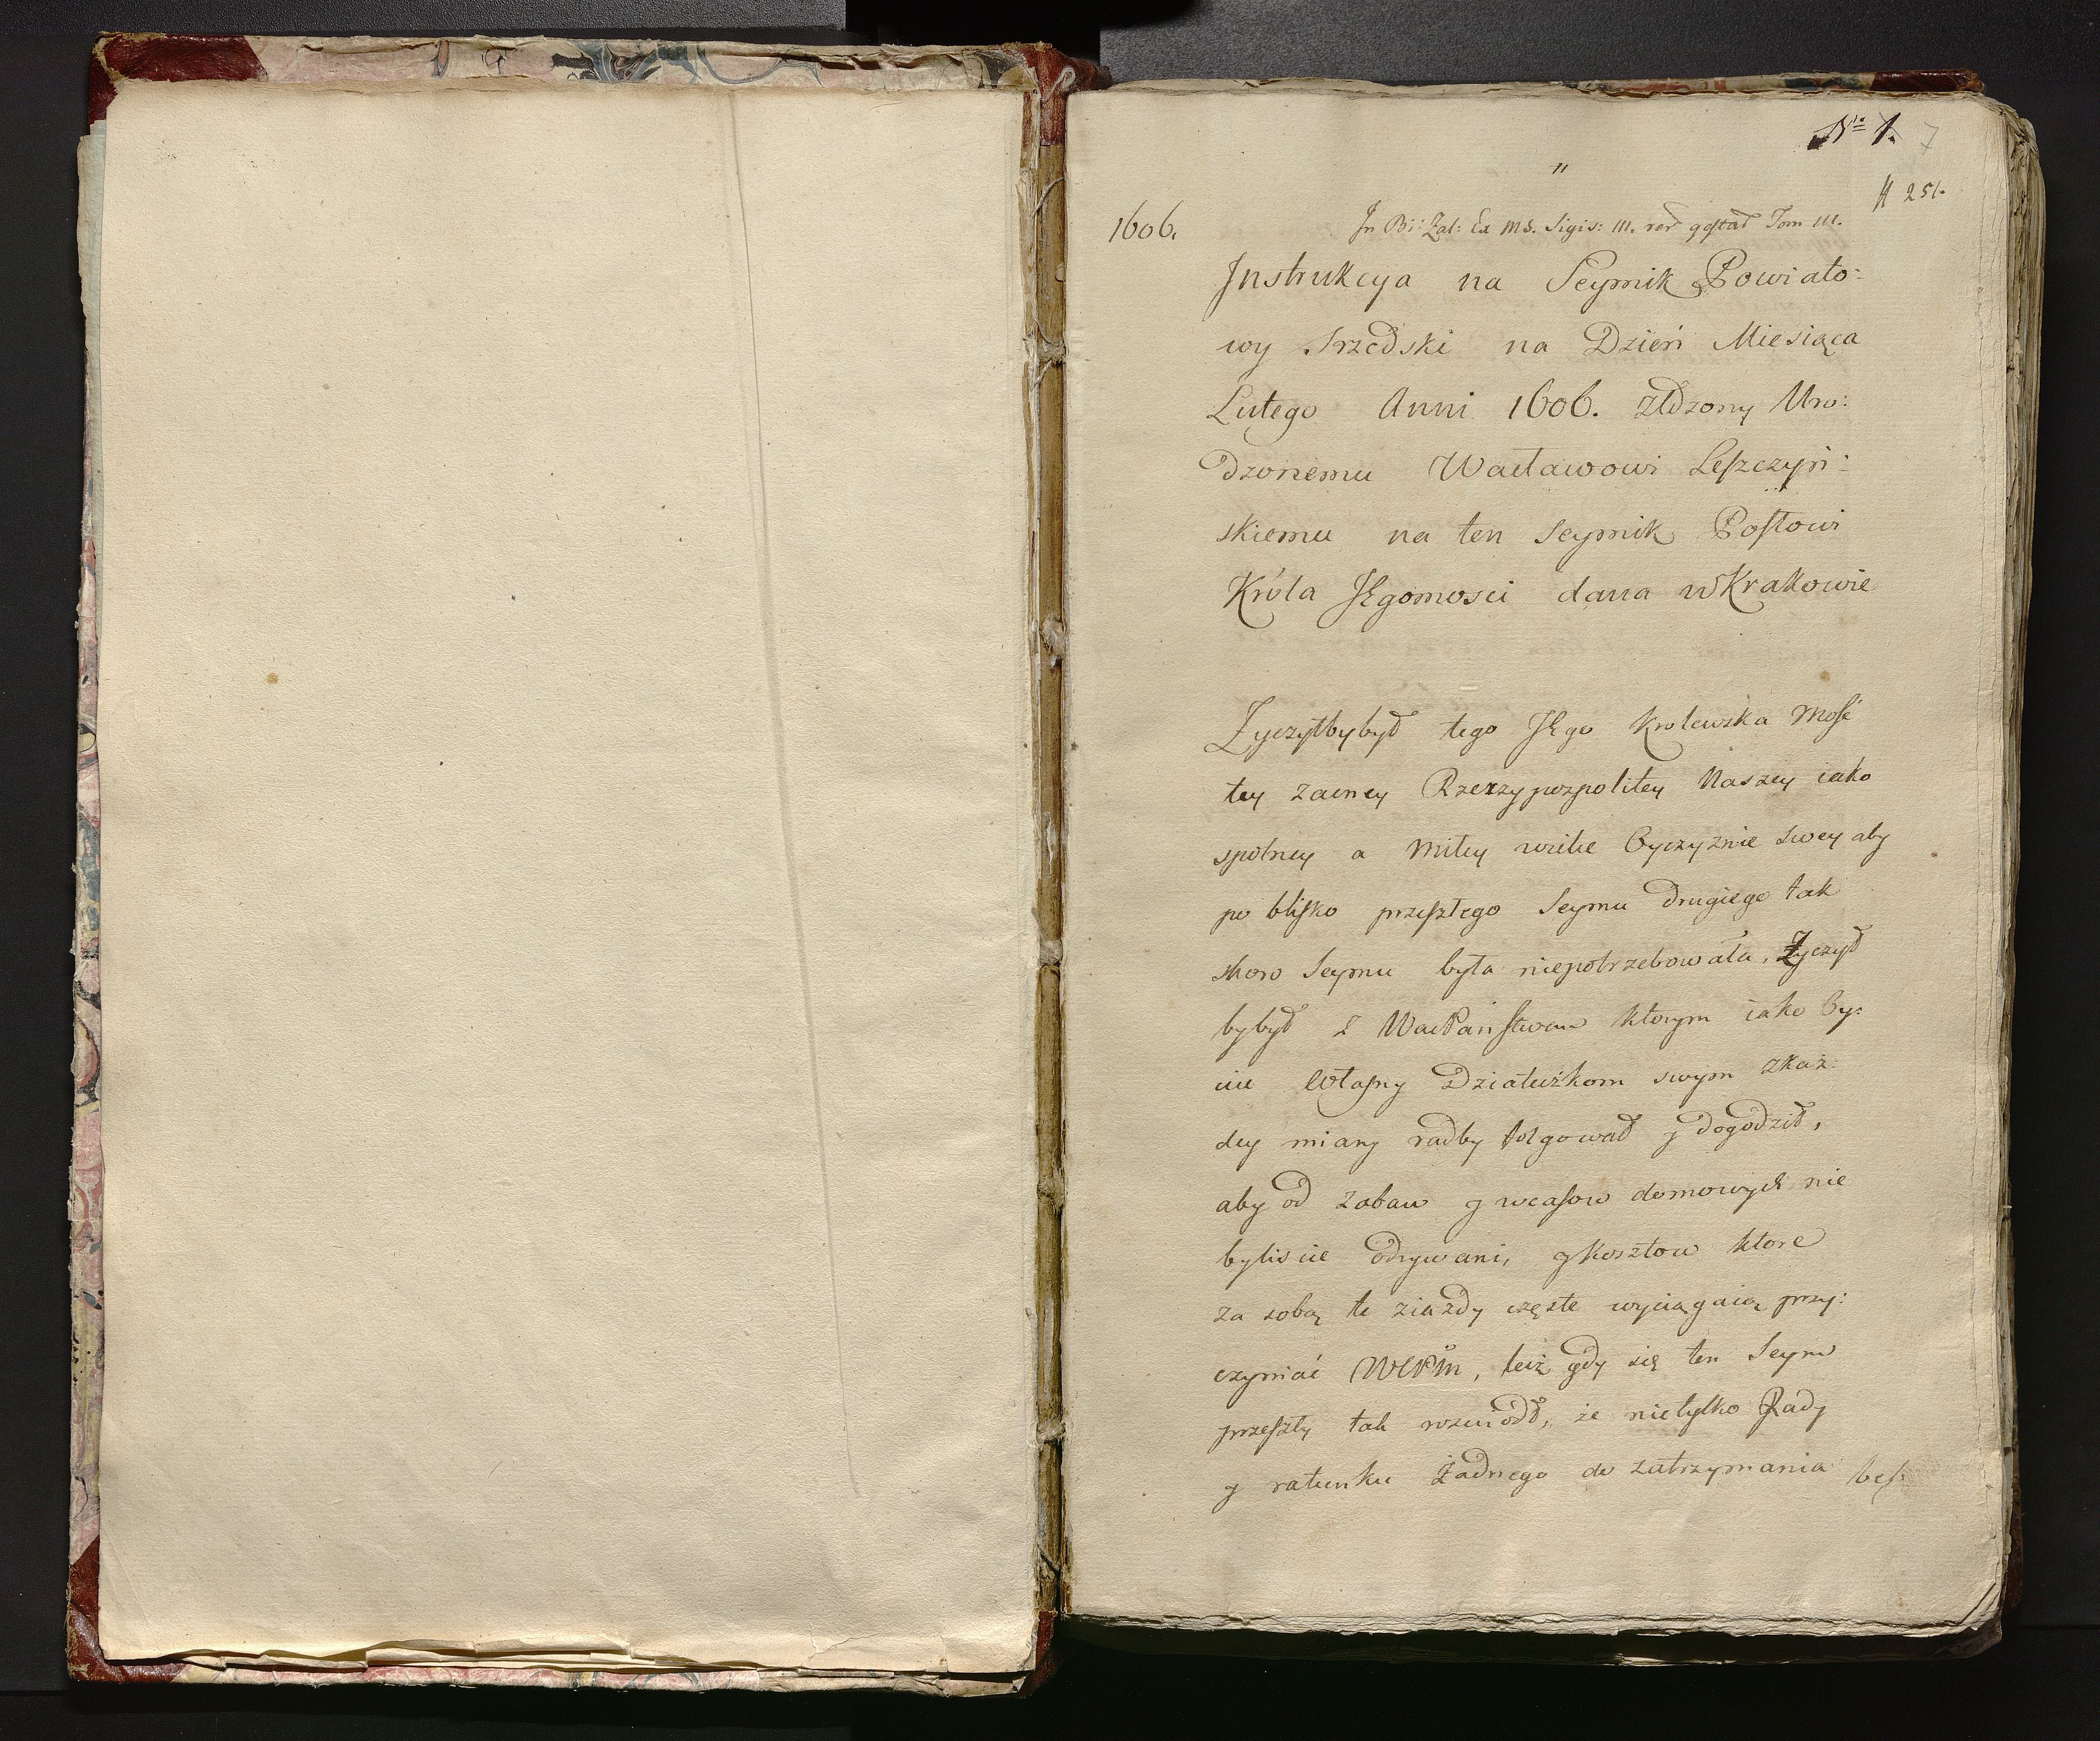 No 1. 7
"
fl 251.
1606.
In Bi: Zal: Ex MS. Sigis: III. rer gestar Tom III.
Instrukcya na Seymik Powiato:
wy Srzedski na Dzień Miesiąca
Lutego Anni 1606. złożony Uro:
dzonemu Wacławowi Leszczyń:
skiemu na ten Seymik Posłowi
Króla JEgomosci dana w Krakowie
Zyczyłbybył tego JEgo Krolewska Mość
tey zacney Rzeczypospolitey Naszey iako
spolney a miłey wielce Oyczyznie swey aby
po blisko przeszłego Seymu drugiego tak
skoro Seymu była niepotrzebowała, Zyczył
bybył z WacPaństwem ktorym iako Oy:
ciec Własny Dziateczkom swym zkaż:
dey miary radby folgował y dogodził,
aby od zabaw y wczasow domowych nie
byliscie odrywani, y kosztow ktore
za sobą te ziazdy częste wyciągaią przy:
czyniać WMPm, lecż gdy się ten Seym
przeszły tak rozwiódł, że nietylko Rady
y ratunku żadnego do zatrzymania
bes: